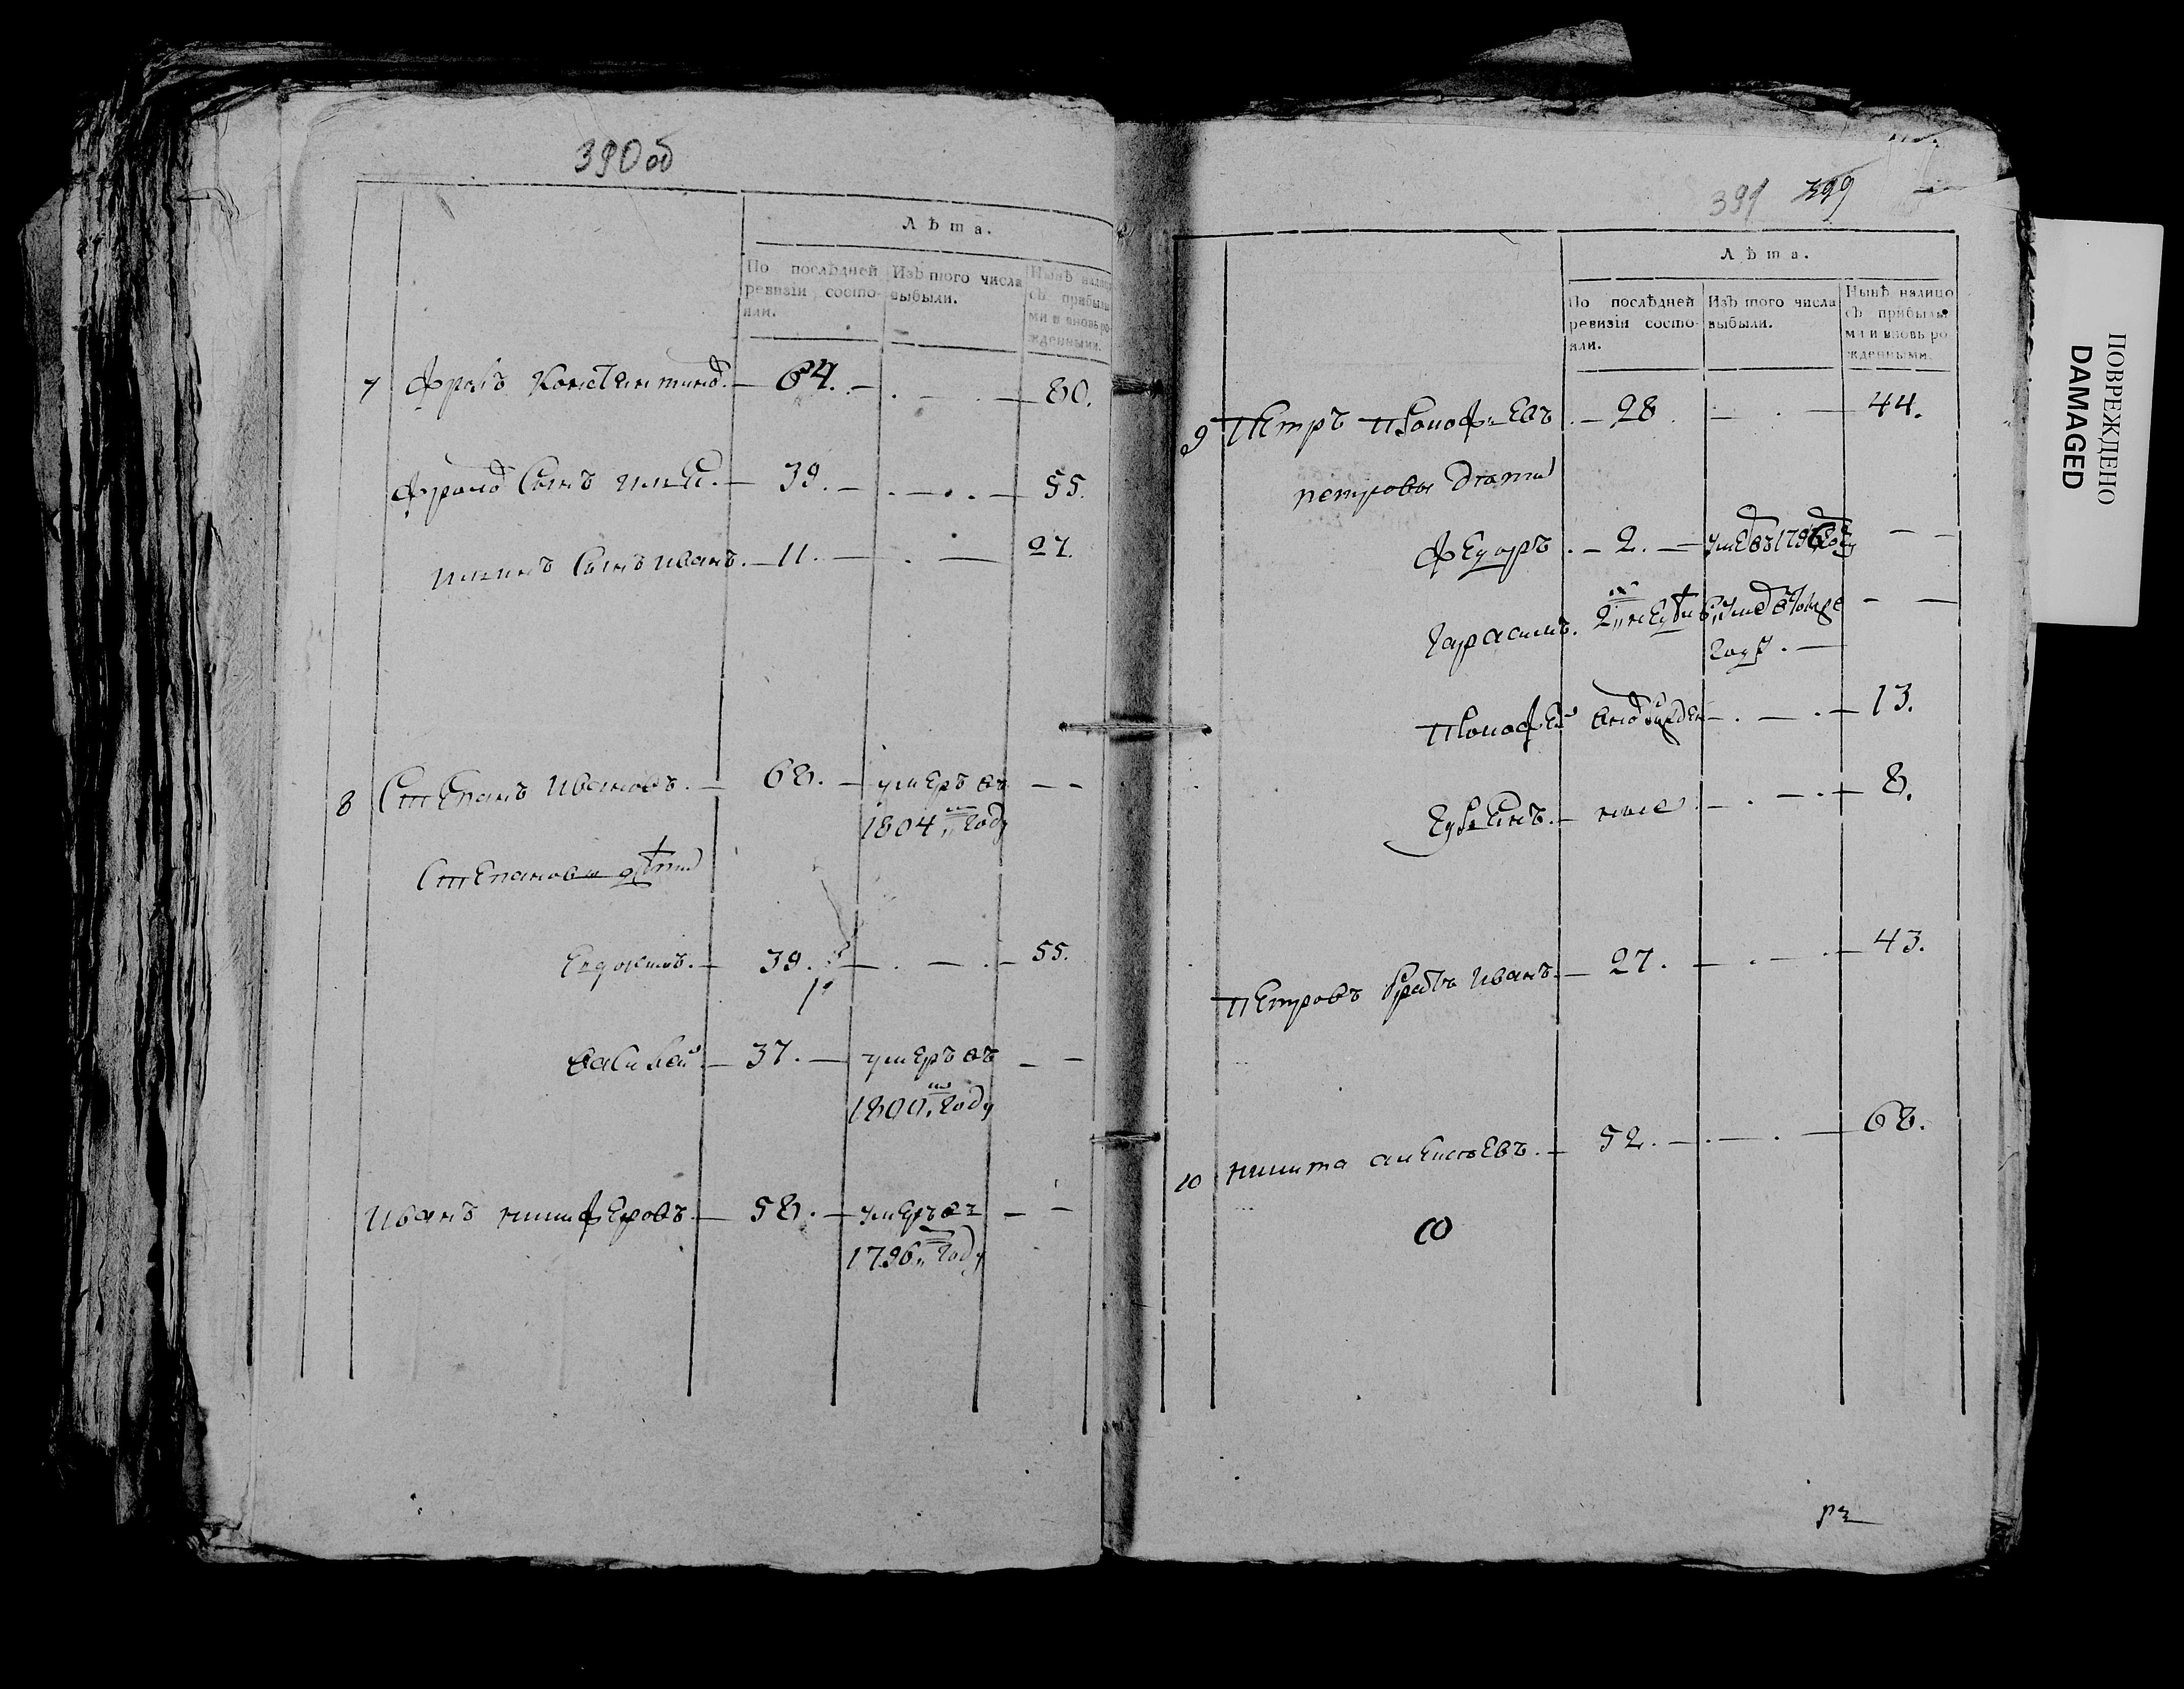 390 об
Лѣта.
По послѣдней ревизіи состояли.
Изъ того числа выбыли.
Нынѣ налицо съ прибылыми и вновь рожденными.
7 Фролъ Константинов. — 64. — 80.
Фролов сынъ Илья. — 39. — 55.
Ильинъ сынъ Иванъ. — 11. — 27.
8 Степанъ Ивановъ. — 68. — умеръ въ — —
1804м году
Степановы дѣти
Евдокимъ. — 39. — 55.
Василей — 37. — умеръ въ — —
1800м году
Иванъ Никифоровъ — 58. — умеръ въ — —
1796м году
391 399
Лѣта.
По послѣдней ревизіи состояли.
Изъ того числа выбыли.
Нынѣ налицо съ прибылыми и вновь рожденными.
9 Петръ — 28 — 44.
Петровы дѣти
Федоръ — 2. — умер въ 1796 году — —
Гарасимъ. 2 недѣль умер в том же — —
году. —
вновь рожден — 13.
— 8.
Петровъ братъ Иванъ — 27. — 43.
10 Никита — 52. — 68.